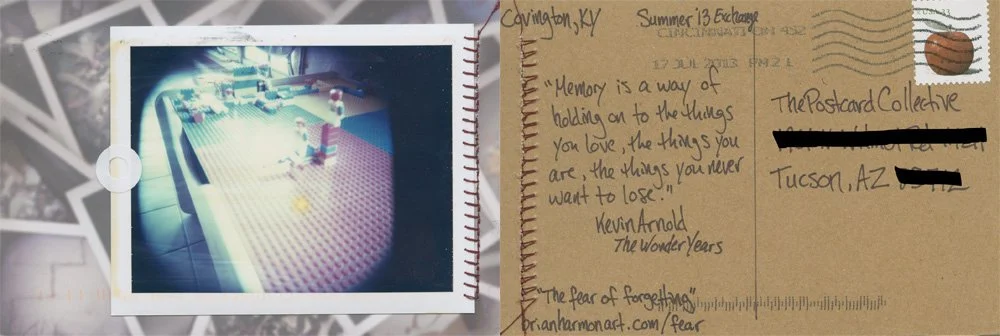 Covington, KY
Summer '13 Exchange
CINCINNATI OH 452
17 JUL 2013 PM 2 L
"Memory is a way of
holding on to the things
you love, the things you
are, the things you never
want to lose."
Kevin Arnold
The Wonder Years
"The fear of forgetting"
brianharmonart.com/fear
The Postcard Collective
Tucson, AZ